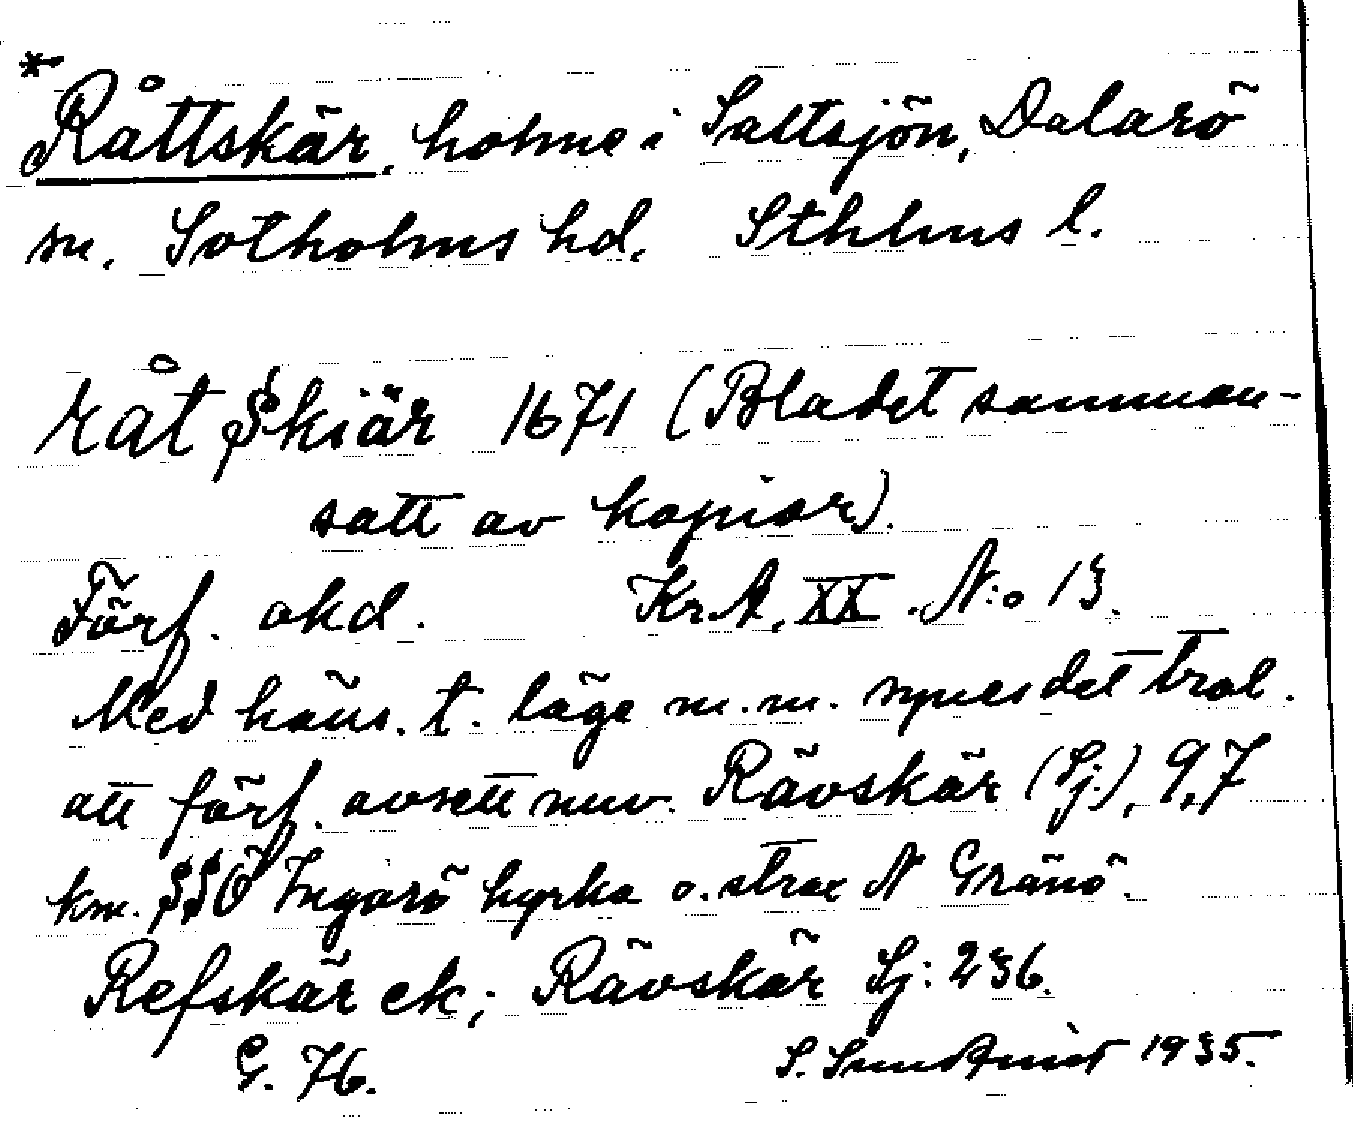 * Råttskär, holme i Saltsjön, Dalarö
sn. Sotholms hd. Sthlms l.
råt Skiär 1671 (Bladet samman-
satt av kopior).
Förf. okd. KrA. XX. N:o 13.
Med häns. t. läge m.m. synes det trol.
att förf. avsett nuv. Rävskär (Sj.), 9,7
km. SSÖ Ingarö kyrka o. strax N Gränö.
Refskär ek; Rävskär Sj: 236.
G. 76. S. Sundkvist 1935.